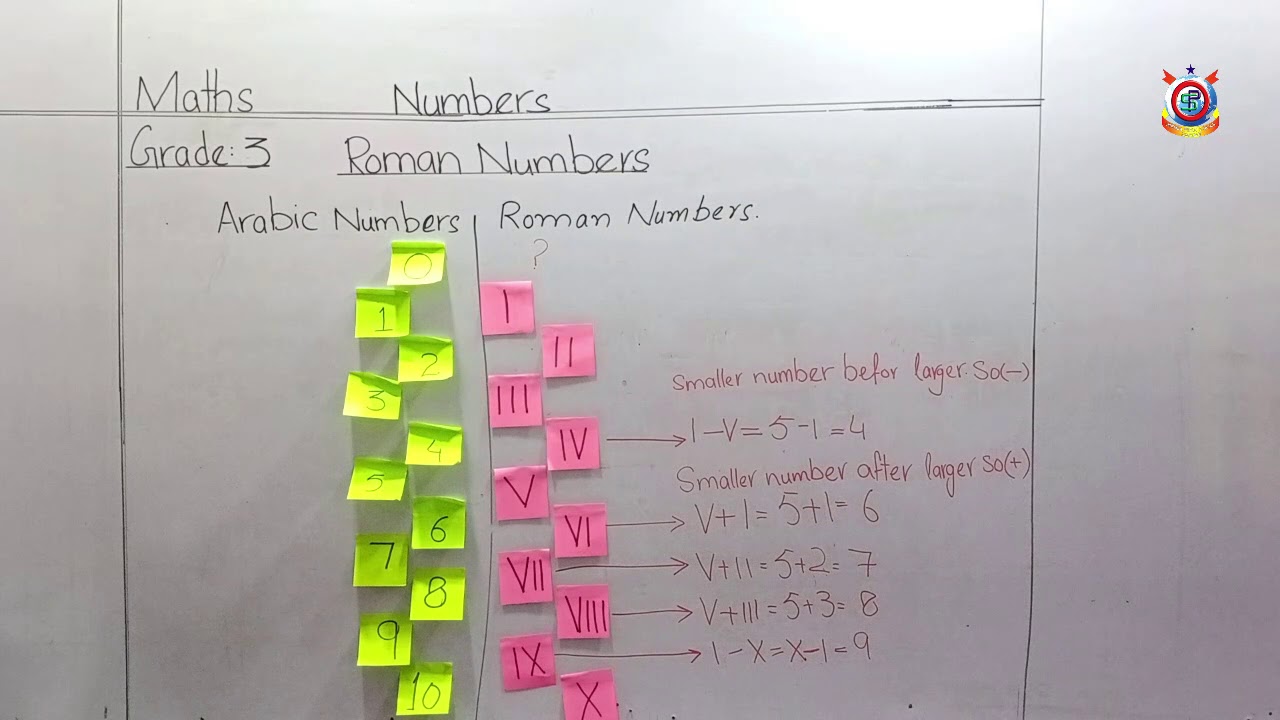 Maths Numbers
Grade: 3 Roman Numbers
Arabic Numbers Roman Numbers.
0 ?
1 I
2 II
Smaller number befor larger. So(-)
3 III
4 IV I-V=5-1=4
Smaller number after larger So(+)
5 V
6 VI V+I=5+1=6
7 VII V+II=5+2=7
8 VIII V+III=5+3=8
9 IX I-X=X-1=9
10 X